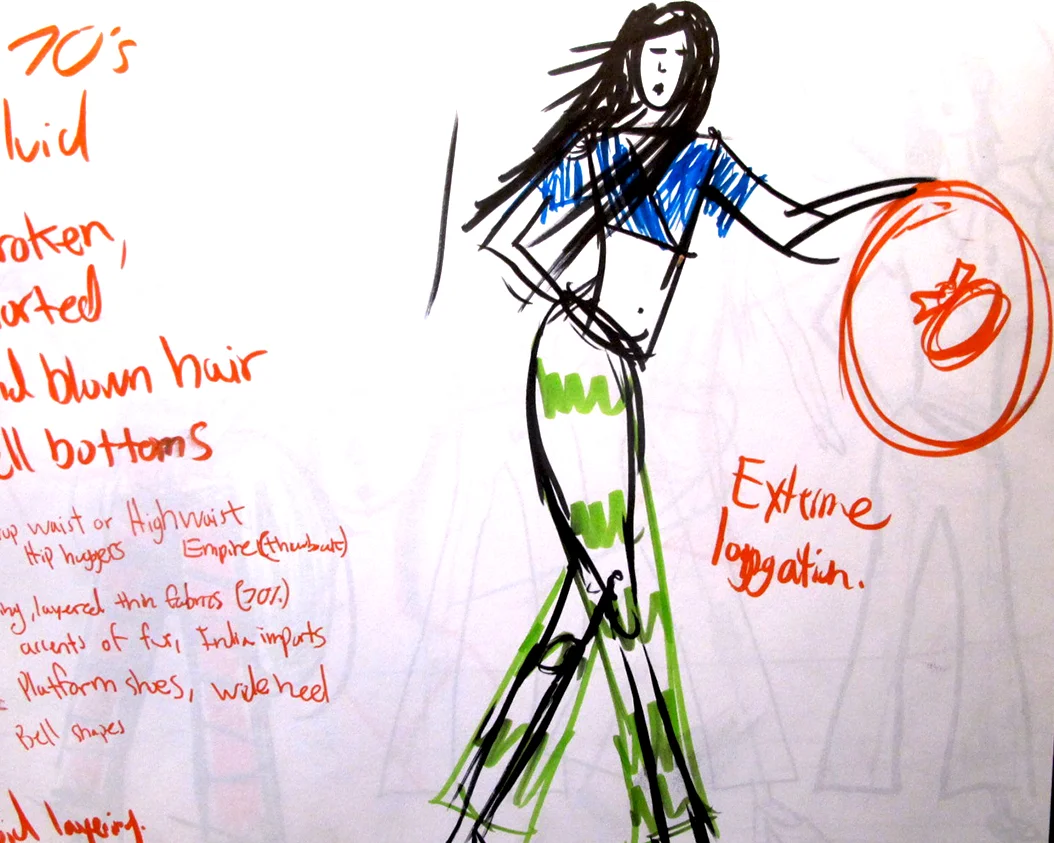 70's
luid
roken,
orted
nd blown hair
ell bottoms
waist or Highwaist
Hip huggers Empire
layered thin fabrics (70%)
accents of fur, India imports
Platform shoes, wide heel
Bell shapes
layering.
Extreme